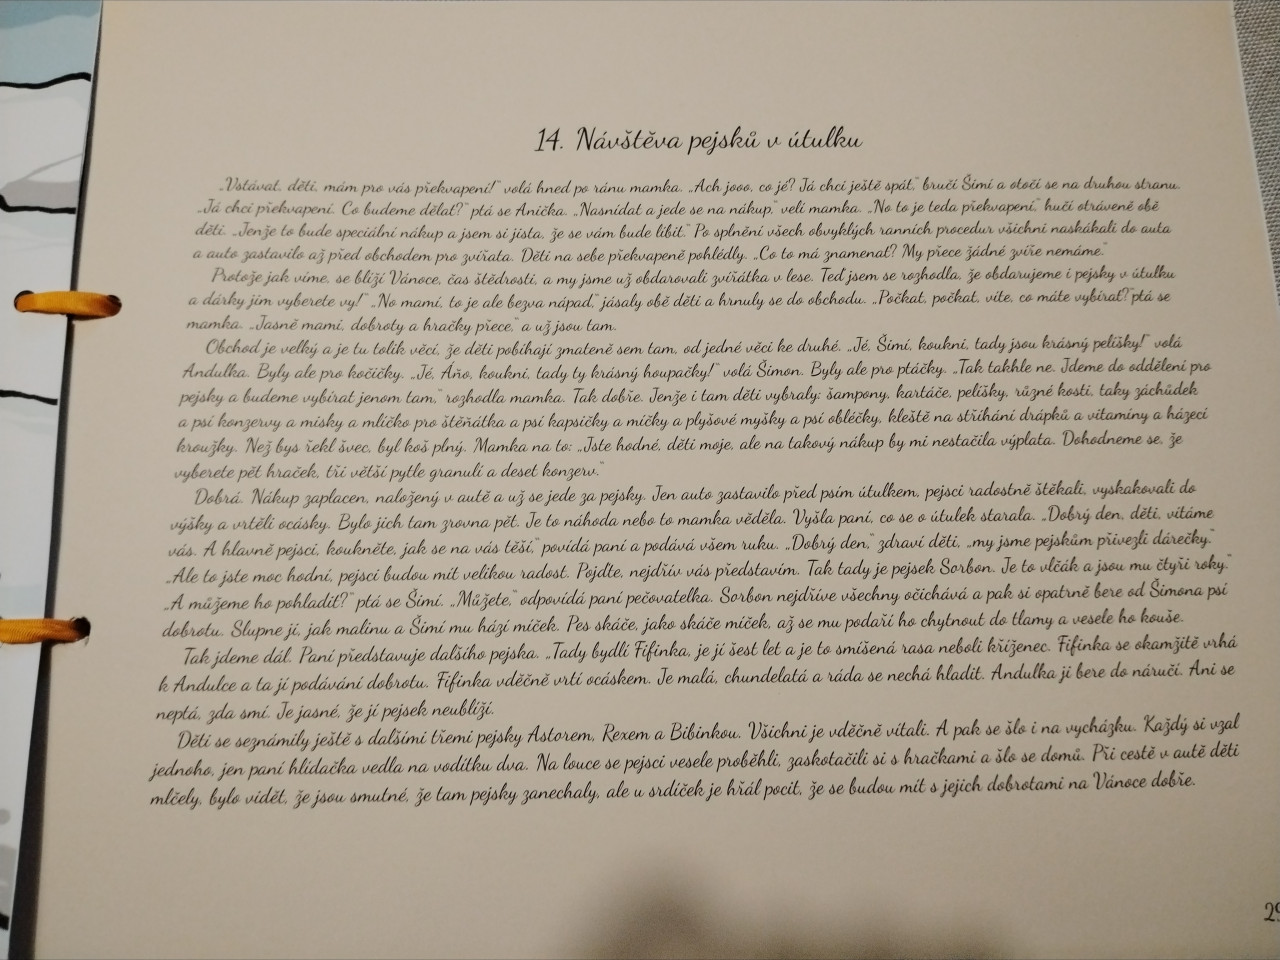 14. Návštěva pejsků v útulku
„Vstávat, děti, mám pro vás překvapení!“ volá hned po ránu mamka. „Ach jooo, co je? Já chci ještě spát,“ bručí Šimi a otočí se na druhou stranu.
„Já chci překvapení. Co budeme dělat?“ ptá se Anička. „Nasnídat a jede se na nákup,“ velí mamka. „No to je teda překvapení,“ hučí otráveně obě
děti. „Jenže to bude speciální nákup a jsem si jista, že se vám bude líbit.“ Po splnění všech obvyklých ranních procedur všichni naskákali do auta
a auto zastavilo až před obchodem pro zvířata. Děti na sebe překvapeně pohlédly. „Co to má znamenat? My přece žádné zvíře nemáme.“
Protože jak víme, se blíží Vánoce, čas štědrosti, a my jsme už obdarovali zvířátka v lese. Teď jsem se rozhodla, že obdarujeme i pejsky v útulku
a dárky jim vyberete vy!“ „No mami, to je ale bezva nápad,“ jásaly obě děti a hrnuly se do obchodu. „Počkat, počkat, víte, co máte vybírat?“ptá se
mamka. „Jasně mami, dobroty a hračky přece,“ a už jsou tam.
Obchod je velký a je tu tolik věcí, že děti pobíhají zmateně sem tam, od jedné věci ke druhé. „Jé, Šimi, koukni, tady jsou krásný pelíšky!“ volá
Andulka. Byly ale pro kočičky. „Jé, Áňo, koukni, tady ty krásný houpačky!“ volá Šimon. Byly ale pro ptáčky. „Tak takhle ne. Jdeme do oddělení pro
pejsky a budeme vybírat jenom tam,“ rozhodla mamka. Tak dobře. Jenže i tam děti vybraly: šampony, kartáče, pelíšky, různé kosti, taky záchůdek
a psí konzervy a misky a mlíčko pro štěňátka a psí kapsičky a míčky a plyšové myšky a psí oblečky, kleště na stříhání drápků a vitamíny a házecí
kroužky. Než bys řekl švec, byl koš plný. Mamka na to: „Jste hodné, děti moje, ale na takový nákup by mi nestačila výplata. Dohodneme se, že
vyberete pět hraček, tři větší pytle granulí a deset konzerv.“
Dobrá. Nákup zaplacen, naložený v autě a už se jede za pejsky. Jen auto zastavilo před psím útulkem, pejsci radostně štěkali, vyskakovali do
výšky a vrtěli ocásky. Bylo jich tam zrovna pět. Je to náhoda nebo to mamka věděla. Vyšla paní, co se o útulek starala. „Dobrý den, děti, vítáme
vás. A hlavně pejsci, koukněte, jak se na vás těší,“ povídá paní a podává všem ruku. „Dobrý den,“ zdraví děti, „my jsme pejskům přivezli dárečky.“
„Ale to jste moc hodní, pejsci budou mít velikou radost. Pojďte, nejdřív vás představím. Tak tady je pejsek Sorbon. Je to vlčák a jsou mu čtyři roky.“
„A můžeme ho pohladit?“ ptá se Šimi. „Můžete,“ odpovídá paní pečovatelka. Sorbon nejdříve všechny očichává a pak si opatrně bere od Šimona psí
dobrotu. Slupne ji, jak malinu a Šimi mu hází míček. Pes skáče, jako skáče míček, až se mu podaří ho chytnout do tlamy a vesele ho kouše.
Tak jdeme dál. Paní představuje dalšího pejska. „Tady bydlí Fifinka, je jí šest let a je to smíšená rasa neboli kříženec. Fifinka se okamžitě vrhá
k Andulce a ta jí podávání dobrotu. Fifinka vděčně vrtí ocáskem. Je malá, chundelatá a ráda se nechá hladit. Andulka ji bere do náručí. Ani se
neptá, zda smí. Je jasné, že jí pejsek neublíží.
Děti se seznámily ještě s dalšími třemi pejsky Astorem, Rexem a Bibinkou. Všichni je vděčně vítali. A pak se šlo i na vycházku. Každý si vzal
jednoho, jen paní hlídačka vedla na vodítku dva. Na louce se pejsci vesele proběhli, zaskotačili si s hračkami a šlo se domů. Při cestě v autě děti
mlčely, bylo vidět, že jsou smutné, že tam pejsky zanechaly, ale u srdíček je hřál pocit, že se budou mít s jejich dobrotami na Vánoce dobře.